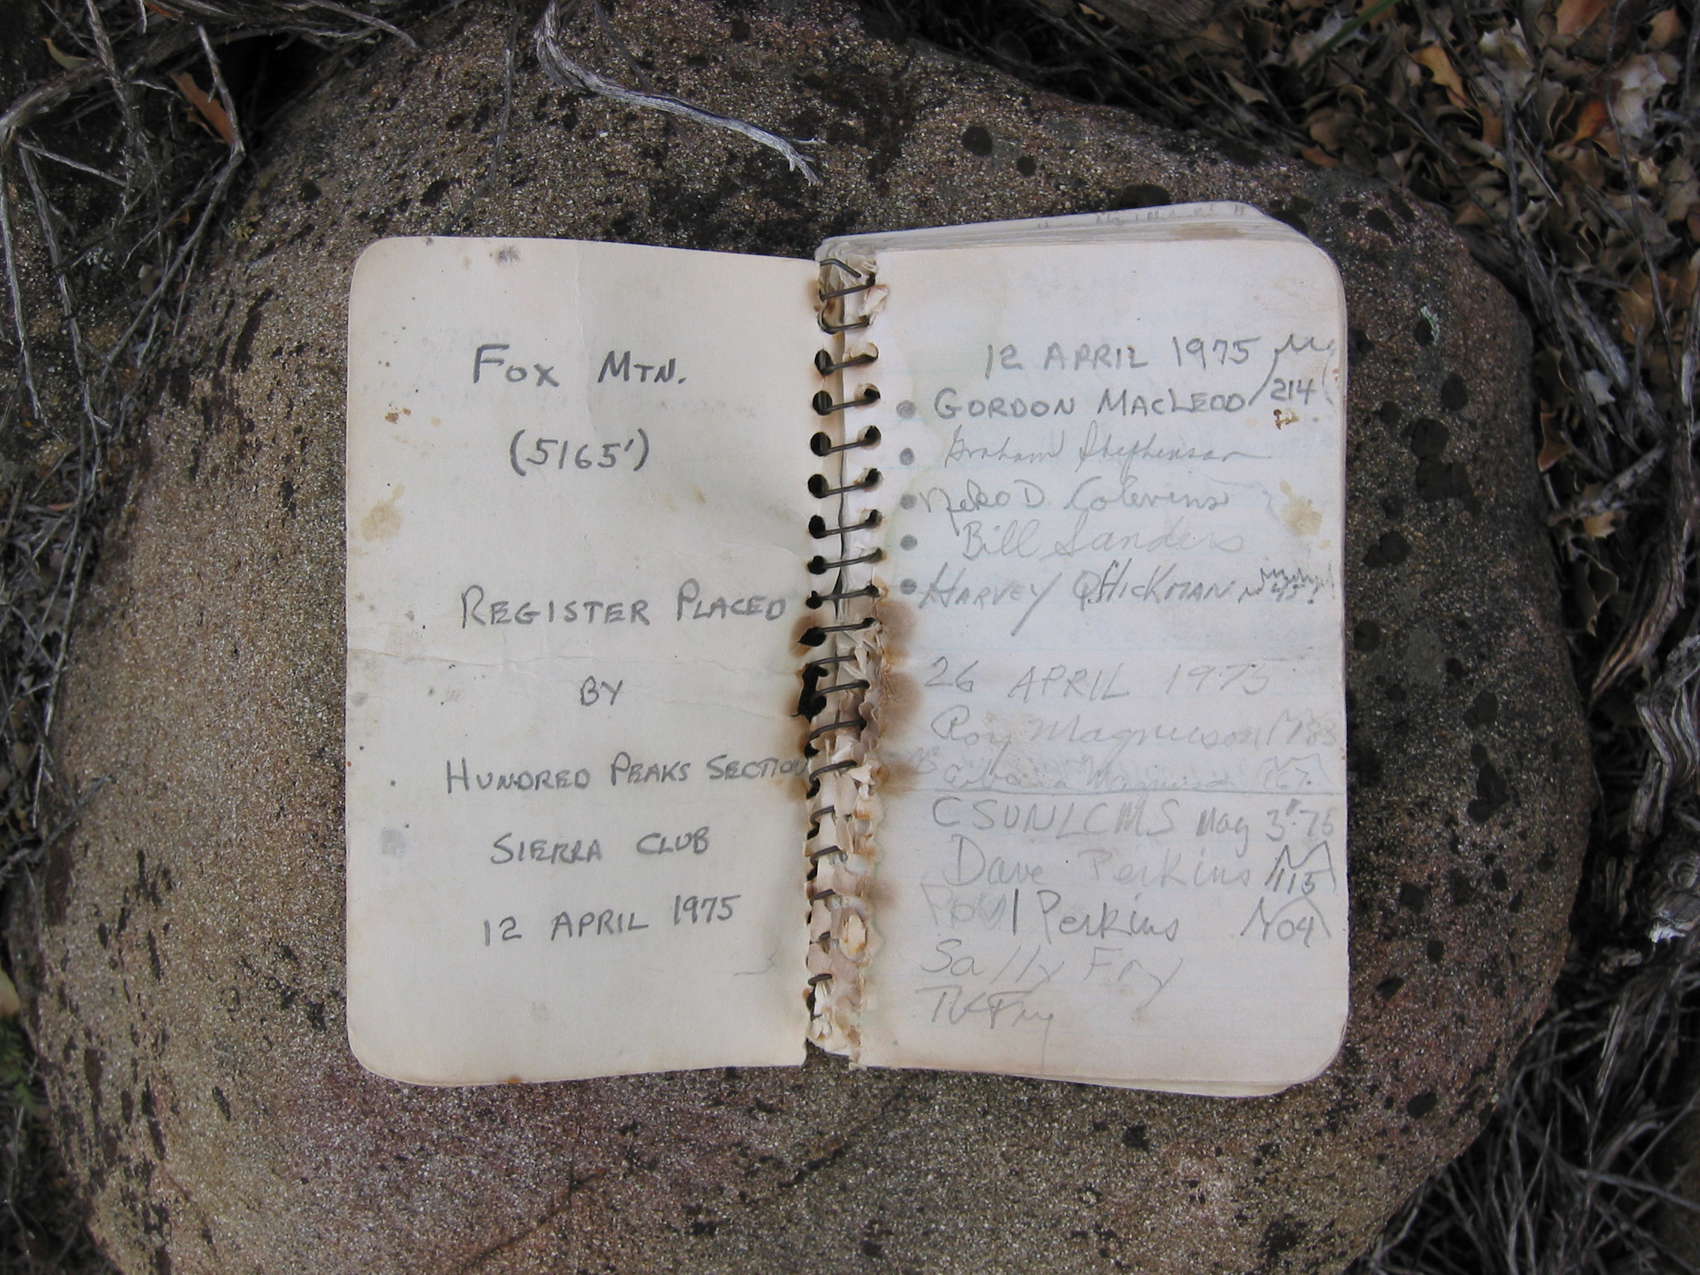 FOX MTN.
(5165')
REGISTER PLACED
BY
HUNDRED PEAKS SECTION
SIERRA CLUB
12 APRIL 1975
12 APRIL 1975
GORDON MACLEOD 214
Graham Stephenson
Bill Sanders
HARVEY HICKMAN
26 APRIL 1975
Roy Magnuson
CSUNLCMS May 3rd 75
Dave Perkins 115
Paul Perkins
Sally Fry
Fry